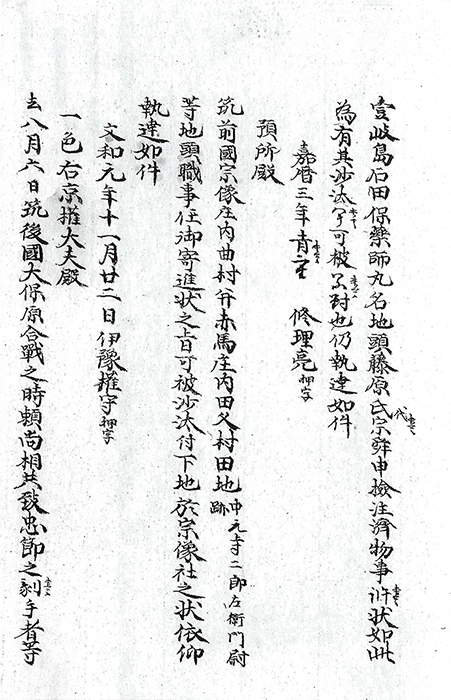 壹岐島石田保藥師丸名地頭藤原氏代宗舜申檢注濟物事訴状如此
為有其沙汰可被封也仍執達如件
嘉暦三年 修理亮押字
預所殿
筑前國宗像庄内曲村并赤馬庄内田久村田地中元寺二郎左衛門尉跡
等地頭職事任御寄進状之旨可被沙汰付下地於宗像社之状依仰
執達如件
文和元年十一月廿二日伊豫權守押字
一色右京權大夫殿
去八月六日筑後國大保原合戰之時頼尚相共致忠節之刻手者等